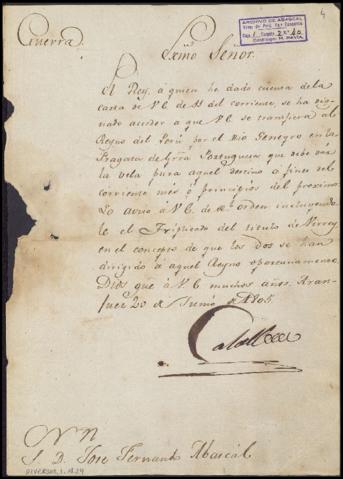 4
ARCHIVO DE ABASCAL
Guerra.
Exmo Señor.
El Rey, á quien he dado cuenta de la
carta de V.E. de 11 del corriente, se ha dig-
nado acceder a que V.E. se transfiera al
Reyno del Perú por el Rio Geneyro en la
Fragata de Grra Portuguesa que debe dar
la vela para aquel destino a fines del
corriente mes ó principios del proximo.
Lo aviso á V.E. de Rl orden incluyendo
le el Triplicado del titulo de Virrey
en el concepto de que los dos se han
dirigido á aquel Reyno oportunamente.
Dios gue á V.E. muchos años. Aran-
juez 20 de Junio de 1805.
Caballero
S. D. Jose Fernando Abascál.
DIVERSOS, 1, A.24